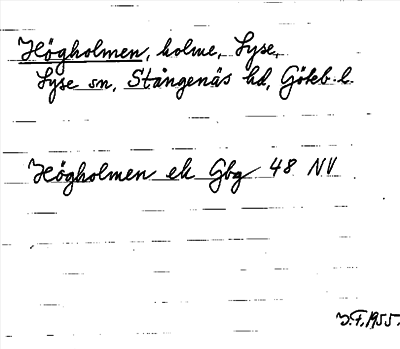 Högholmen, holme, Lyse,
Lyse sn, Stångenäs hd, Göteb. l.
Högholmen ek Gbg 48 NV
J.F. 1955.